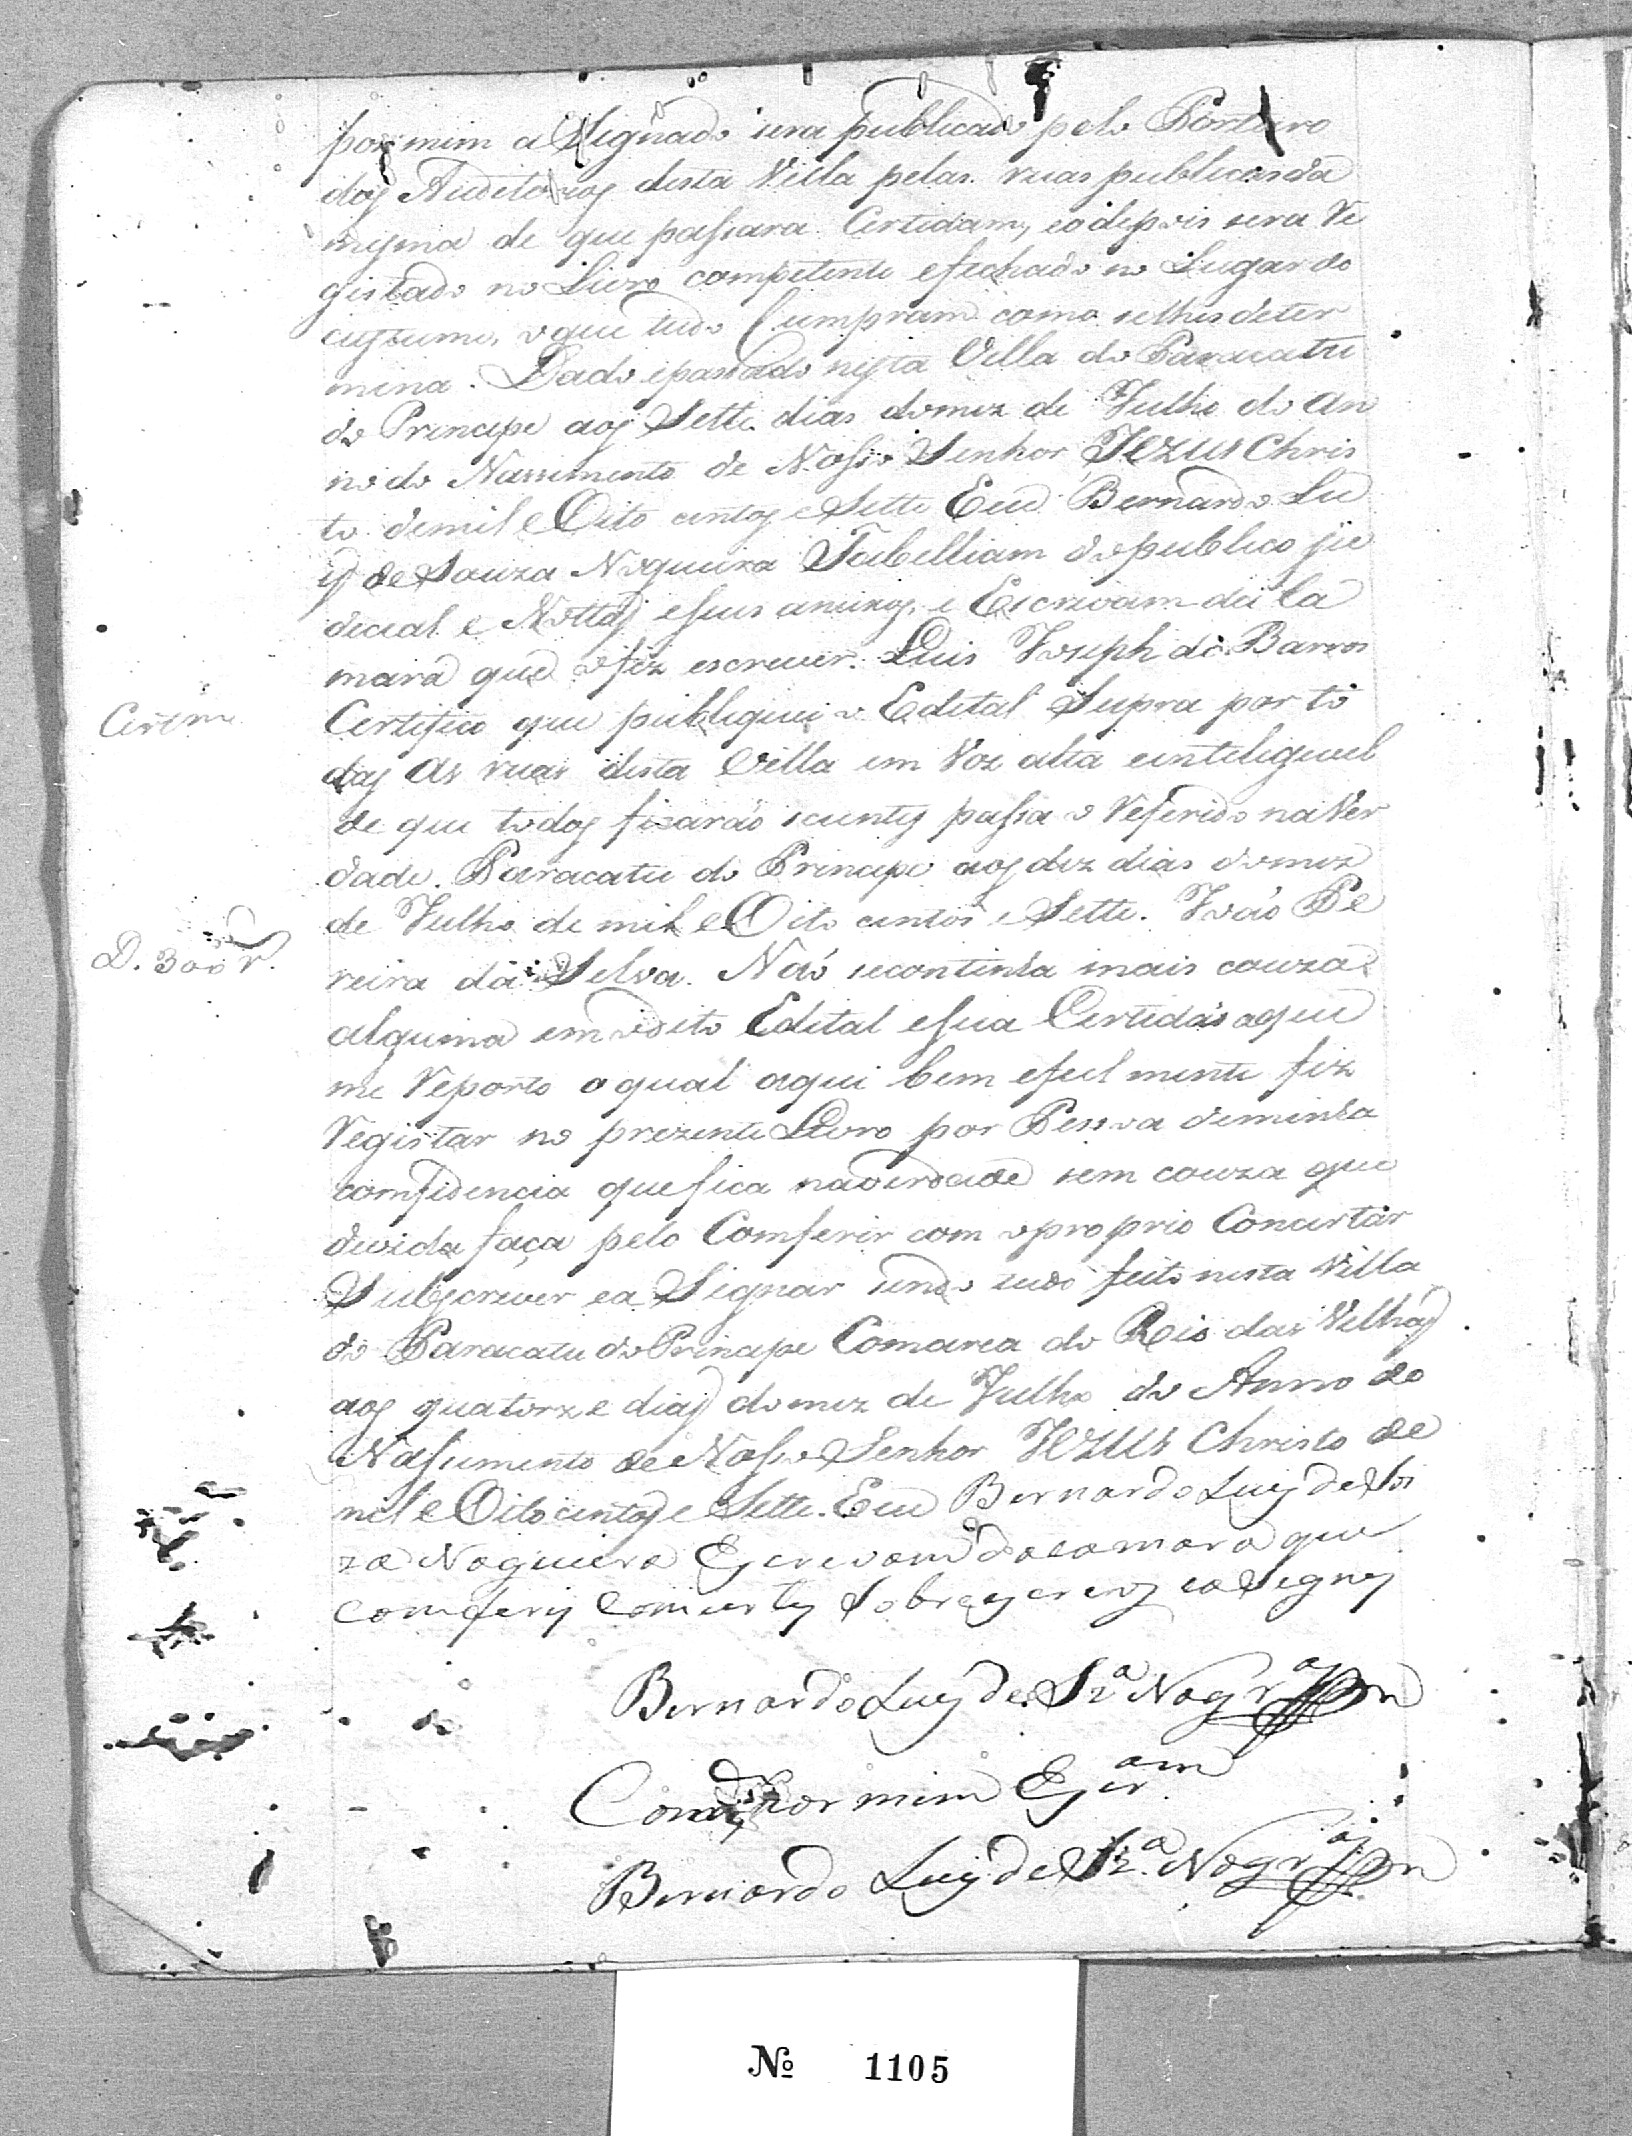 por mim aSignado sera publicado pelo Porteiro
dos Auditorios desta Villa pelas ruas publicas da
mesma de que passara Certidam, eo depois sera Re
gistado no Livro competente efichado no Lugar do
custume, oque tudo Cumpram como selhes deter
mina. Dado epassado nesta Villa do Paracatu
do Principe aos Sette dias domez de Julho do An
no do Nascimento de Nosso Senhor JEZUS Chris
to demil e Oito centos e Sette Eu Bernardo Lu
is de Souza Nogueira Tabelliam do publico ju
dicial e Nottas eseus anexos, e Escrivam da Ca
mara que o fiz escrever. Luis Joseph de Barros
Certifico que publiquei o Edital Supra por to
das As ruas desta Villa em Voz alta eintiligivel
de que todos ficaraõ scientes passa o Referido na Ver
dade. Paracatu do Principe aos dez dias domez
de Julho de mil e Oito centos e Sette. Joaõ Pe
reira da Silva. Naõ secontinha mais couza
D. 300 r.
alguma em odito Edital esua Certidaõ aque
me Reporto oqual aqui bem efiel mente fiz
Registar no prezente Livro por Pessoa deminha
comfidencia quefica naverdade sem couza que
duvida faça pelo Comferir com opro prio Concertar
Subscrever ea Signar sendo tudo feito nesta Villa
do Paracatu do Principe Comarca do Rio das Velhas
aos quatorze dias domez de Julho do Anno do
Nassimento de Nosso Senhor JEZUS Christo de
mil e Oito centos e Sette. Eu Bernardo Luis de So
za Nogueira Escrivam da camara que
comfery comcerty Sobreescrevy ea Signey
Bernardo Luis de Sz.ª Nogr.ª
Comg.º por mim Escr.am
Bernardo Luis de Sz.ª Nogr.ª
Nº 1105